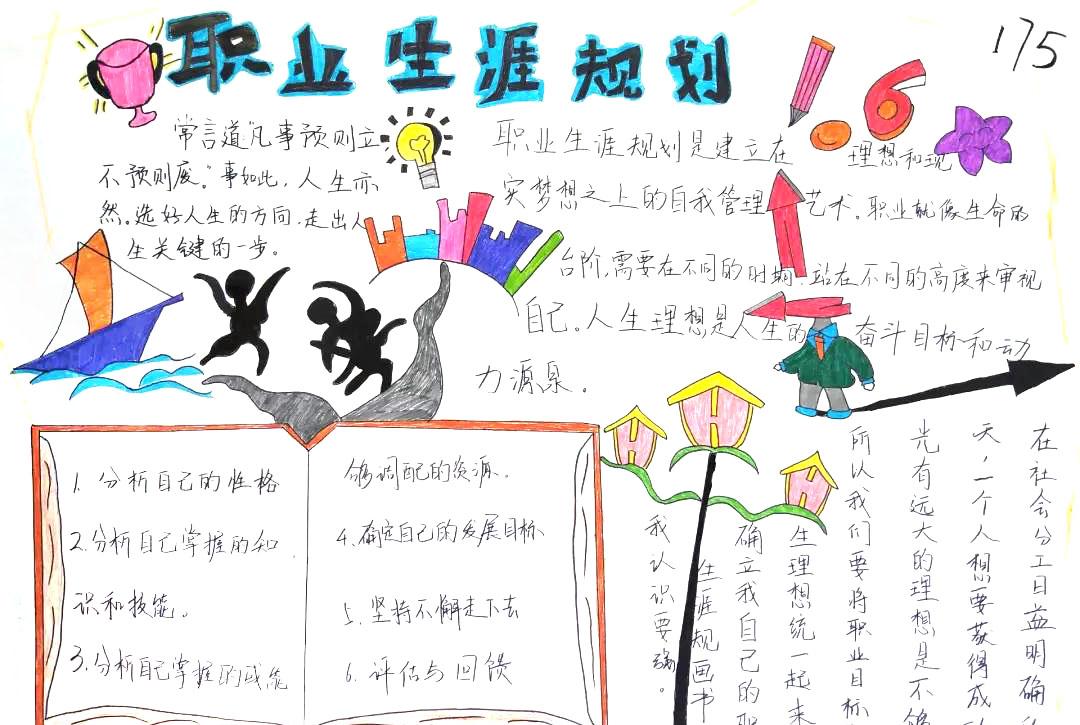 职业生涯规划
175
6
常言道"凡事预则立
不预则废。"事如此，人生亦
然。选好人生的方向，走出人
生关键的一步。
职业生涯规划是建立在 理想和现
实梦想之上的自我管理 艺术。职业就像生命的
台阶，需要在不同的时期，站在不同的高度来审视
自己。人生理想是人生的 奋斗目标和动
力源泉。
1. 分析自己的性格
2.分析自己掌握的知
识和技能。
3.分析自己掌握的或能
够调配的资源。
4.确定自己的发展目标
5. 坚持不懈走下去
6. 评估与回馈
在社会分工日益明确
天，一个人想要获得成
光有远大的理想是不够
所以我们要将职业目标
生理想统一起来
确立我自己的职
生涯规画书
我认识要强。